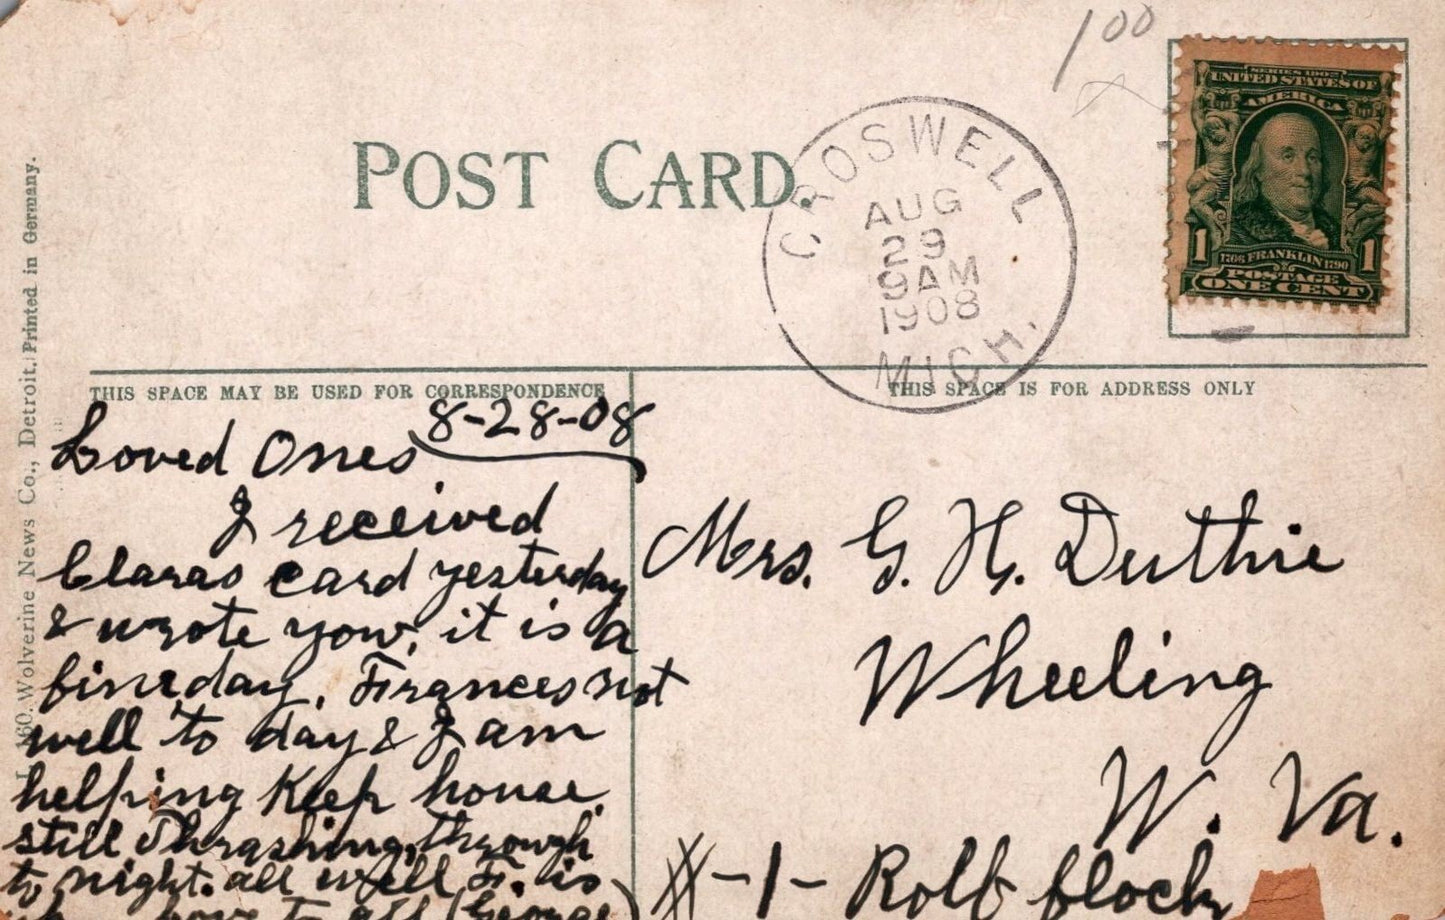 1 00
POST CARD.
CROSWELL
AUG
29
9AM
1908
MICH.
SERIES 1902
UNITED STATES OF
AMERICA
1 1
1706 FRANKLIN 1790
POSTAGE
ONE CENT
THIS SPACE MAY BE USED FOR CORRESPONDENCE
THIS SPACE IS FOR ADDRESS ONLY
Wolverine News Co., Detroit. Printed in Germany.
8-28-08
Loved Ones
I received
Claras card yesterday
& wrote you, it is a
fine day, Frances not
well to day & I am
helping Keep house.
still Thrashing, through
to night. all well F. is
love to all (George
Mrs. G. H. Duthie
Wheeling
W. Va.
#-1- Rolf block